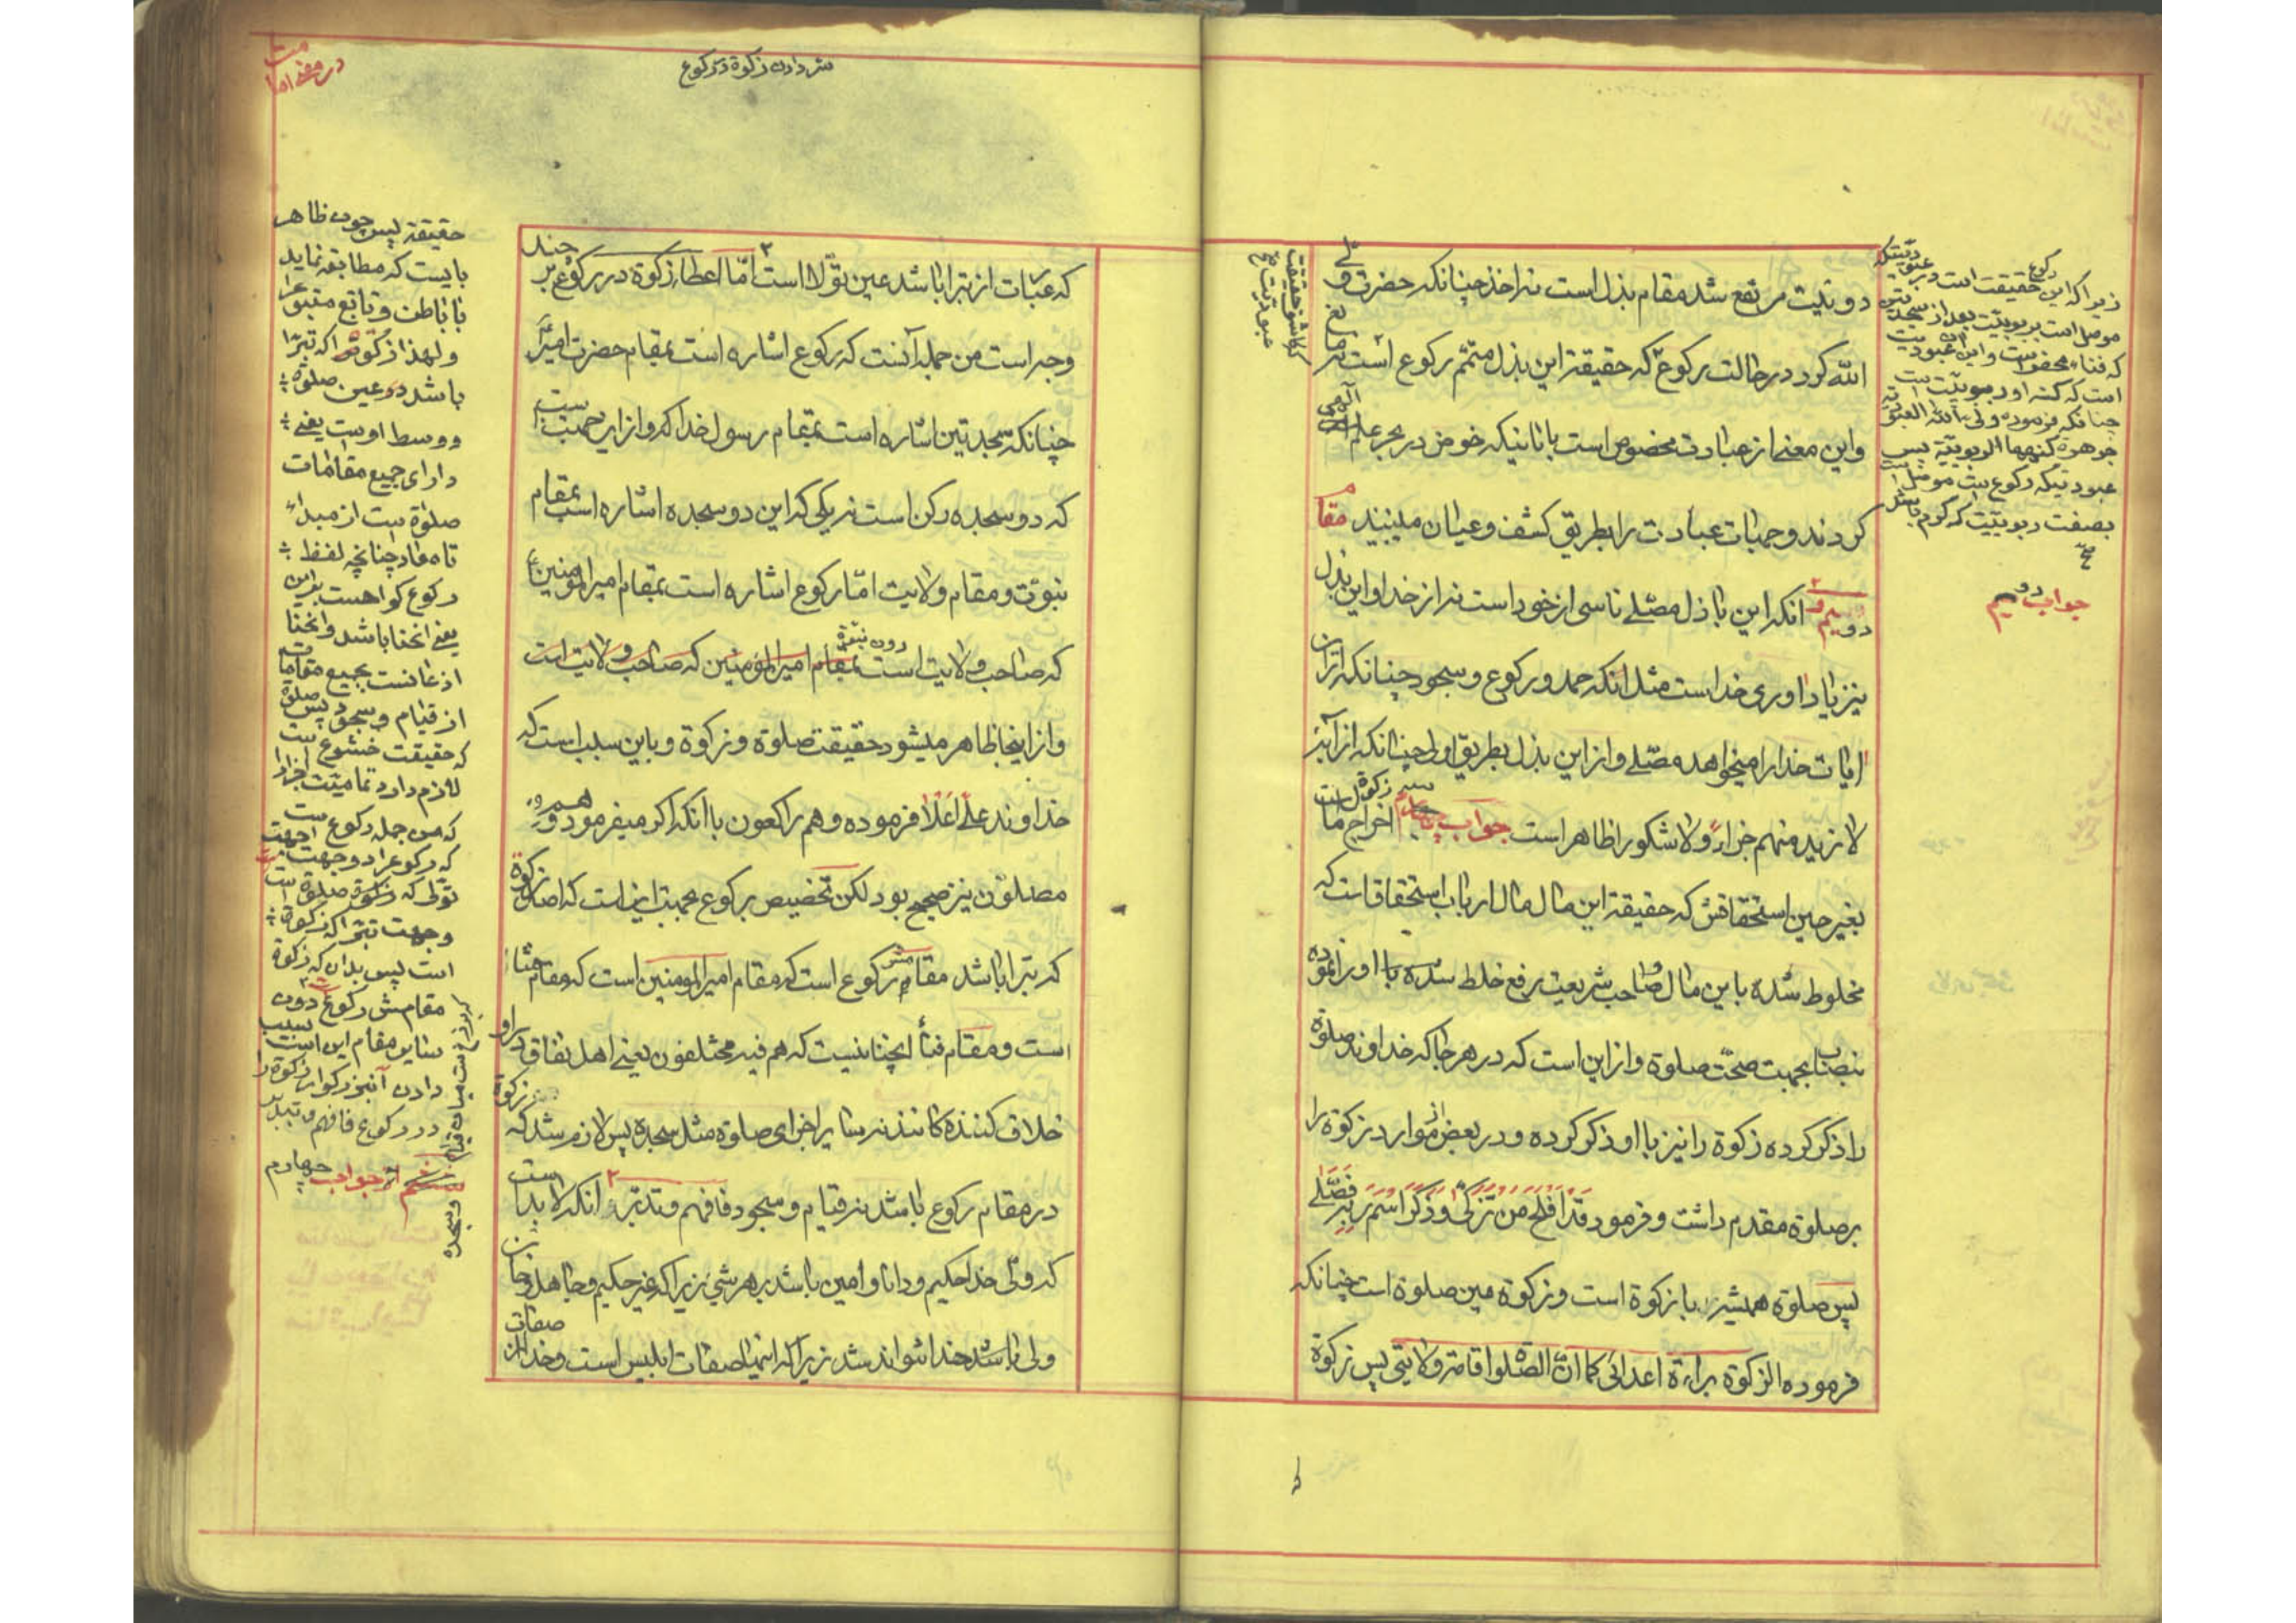 دوئیت مرتفع شد مقام بذل است نه اخذ چنانکه حضرت ولی
الله کرد در حالت رکوع که حقیقة این بذل متمّم رکوع است نه مانع
واین معنی از عبادت مخصوص است باناینکه خوض در بحر علم الهی
کردند و جهات عبادت را بطریق کشف وعیان میبینید مقام
دویم انکه این باذل مصلّے ناسی از خود است نه از خدا واین بذل
نیز یاد اوری خدا است مثل انکه حمد و رکوع وسجود چنانکه از ان
ایات خدا را میخواهد مصلّے واز این بذل بطریق اولی چنانکه از آیه
لا نرید منهم جزاءً ولا شکورا ظاهر است جواب اخراج زکوة
بغیر حین استحقاقش که حقیقة این مال مال ارباب استحقاق است که
مخلوط شده باین مال و صاحب شریعت رفع خلط شده با او را نموده
بجهت صحّت صلوة واز این است که در هر جا که خداوند صلوة
را ذکر کرده زکوة را نیز با او ذکر کرده و در بعض از موارد زکوة را
بر صلوة مقدم داشت وفرمود قَدْ اَفْلَحَ مَن تَزَکّٰی وَذَکَرَ اسْمَ رَبِّهِ فَصَلّٰے
پس صلوة همیشه با زکوة است وزکوة مبین صلوة است چنانکه
فرموده الزکوة براءة اعدائی کما انّ الصّلوة اقامة ولایتی پس زکوة
زیرا که این رکوع حقیقت است
موصل است بربوبیّت بعد از سجدتین
که فناء محض است واین عبودیت
است که کنه او ربوبیّت است
چنانکه فرموده ولی الله العبودیّة
جوهرة کنهها الربوبیّة پس
عبودیتیکه رکوع است موصل است
بصفت ربوبیّت که کرم باشد
صح
جواب دویم
که کاشف حقیقت
عبودیت صح
سرّ دادن زکوة در رکوع
که عبّات از تبرا باشد عین تولا است امّا اعطاء زکوة در رکوع بر چند
وجه است من جمله آنست که رکوع اشاره است بمقام حضرت امیر
چنانکه سجدتین اشاره است بمقام رسول خدا که واز این جهت است
که دو سجده رکن است نه یکی که این دو سجده اشاره است بمقام
نبوّت ومقام ولایت امّا رکوع اشاره است بمقام امیر المؤمنین ع
که صاحب ولایت است دون نبوة بمقام امیر المؤمنین که صاحب ولایت است
واز اینجا ظاهر میشود حقیقت صلوة وزکوة وباین سبب است که
خداوند علی اعلا فرموده وهم راکعون با انکه اکر میفرمود وهم
مصلّون نیز صحیح بود لکن تخصیص رکوع بجهت این است که اصل زکوة
که تبرا باشد مقامش رکوع است که مقام امیر المومنین است که مقام
است ومقام فنا آنچنانیست که هم فیه مختلفون یعنے اهل نفاق در او
خلاف کننده کانند نه سایر اجزای صلوة مثل سجده پس لازم شد که زکوة
در مقام رکوع باشد نه قیام وسجود فافهم وتدبّر انکه لا بد است
که ولی خدا حکیم ودانا وامین باشد بر هر شی زیرا که غیر حکیم وجاهل وخائن
ولی خدا نتواند شد زیرا که اینها صفات ابلیس است
حقیقة پس چون ظاهر
بایست که مطابقه نماید
با باطن وتابع متبوع را
ولهذا زکوة را که تبرّا
باشد در عین صلوة
ووسط اوست یعنے
دارای جمیع مقامات
صلوة است از مبدا
تا معاد چنانچه لفظ
رکوع کواهست براین
یعنے انحنا باشد وانحنا
از قیام وسجود پس صلوة
که حقیقت خشوع است
لازم دارد تمامیّت اجزا را
که من جمله رکوع است
که رکوع را دو جهت است
وجهت تبرا که زکوة
است پس بدان که زکوة
مقامش رکوع دون
سایر مقام این است سبب
دادن آنبزرکوار زکوة را
در رکوع فافهم وتدبّر
جواب چهارم